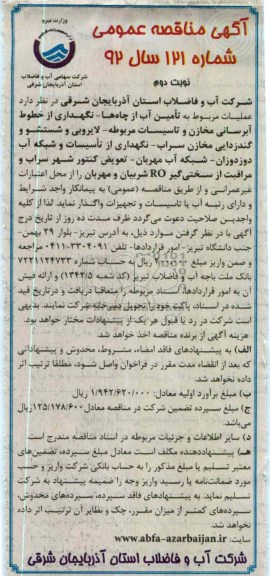 آگهی مناقصه عمومی
شماره ۱۲۱ سال ۹۲
وزارت نیرو
شرکت سهامی آب و فاضلاب
استان آذربایجان شرقی
نوبت دوم
شرکت آب و فاضلاب استان آذربایجان شرقی در نظر دارد
عملیات مربوط به تأمین آب از چاه‌ها- نگهداری از خطوط
آبرسانی مخازن و تاسیسات مربوطه- لایروبی و شستشو و
گندزدایی مخازن سراب- نگهداری از تأسیسات و شبکه آب
دوزدوزان- شبکه آب مهربان- تعویض کنتور شهر سراب و
مراقبت از سختی‌گیر RO شربیان و مهربان را از محل اعتبارات
غیرعمرانی و از طریق مناقصه (عمومی) به پیمانکار واجد شرایط
و دارای رتبه آب یا تاسیسات و تجهیزات واگذار نماید. لذا از کلیه
واجدین صلاحیت دعوت می‌گردد ظرف مدت ده روز از تاریخ درج
آگهی با در نظر گرفتن موارد ذیل، به آدرس تبریز- بلوار ۲۹ بهمن-
جنب دانشگاه تبریز- امور قراردادها- تلفن ۳۳۰۴۰۹۱-۰۴۱۱ مراجعه
و ضمن واریز مبلغ ریال به حساب شماره ۷۲۲۱۱۲۴۷۳۳
بانک ملت باجه آب و فاضلاب تبریز (کد شعبه ۱۳۴۲/۵) و ارائه فیش
آن به امور قراردادها، اسناد مربوطه را متعاقبا دریافت و در تاریخ قید
شده در اسناد، پاکت خود را تحویل دبیرخانه شرکت نمایند. بدیهی
است شرکت در رد یا قبول هر یک از پیشنهادات مختار خواهد بود.
هزینه آگهی از برنده مناقصه اخذ خواهد شد.
الف) به پیشنهادهای فاقد امضاء، مشروط، مخدوش و پیشنهاداتی
که بعد از انقضاء مدت مقرر در فراخوان واصل شود، مطلقا ترتیب اثر
داده نخواهد شد.
ب) مبلغ برآورد اولیه معادل: ۱/۹۴۲/۶۲۰/۰۰۰ ریال
ج) مبلغ سپرده تضمین شرکت در مناقصه معادل ۱۲۵/۱۷۸/۶۰۰ ریال
می‌باشد.
د) سایر اطلاعات و جزئیات مربوطه در اسناد مناقصه مندرج است.
هـ) پیشنهاددهنده مکلف است معادل مبلغ سپرده، تضمین‌های
معتبر تسلیم یا مبلغ مذکور را به حساب بانکی شرکت واریز و حسب
مورد ضمانت‌نامه یا رسید واریز وجه را ضمیمه پیشنهاد به شرکت
تسلیم نماید. به پیشنهادهای فاقد سپرده، سپرده‌های مخدوش،
سپرده‌های کمتر از میزان مقرر، چک و نظایر آن ترتیب اثر داده
نخواهد شد.
سایت: www.abfa-azarbaijan.ir
شرکت آب و فاضلاب استان آذربایجان شرقی